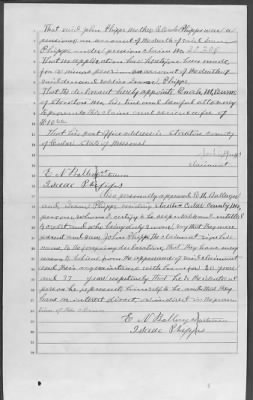 That said John Phipps mother Phipps were a
pensioner on account of the death of said Lewis
Phipps under pension claim No.
That no application has heretofore been made
for a minor pension on account of the death of
said deceased soldier Lewis Phipps
That the declarant hereby appoints
of Stockton Mo. his true and lawful attorney
to prosecute this claim and receive a fee of
$10.00
That his post office address is Stockton county
of Cedar State of Missouri
John Phipps
claimant
E N
Isaac Phipps
Also personally appeared E N
and Isaac Phipps residing Cedar County Mo
persons whom I certify to be respectable and entitled
to credit and who being duly sworn say that they were
present and saw John Phipps the claimant sign his
name to the foregoing declaration, that they have every
reason to believe from the appearance of said claimant
and their acquaintance with him for 30 years
and 37 years respectively that he is the identical
person he represents himself to be and that they
have no interest direct or indirect in the prosecu-
tion of this claim
E N
Isaac Phipps